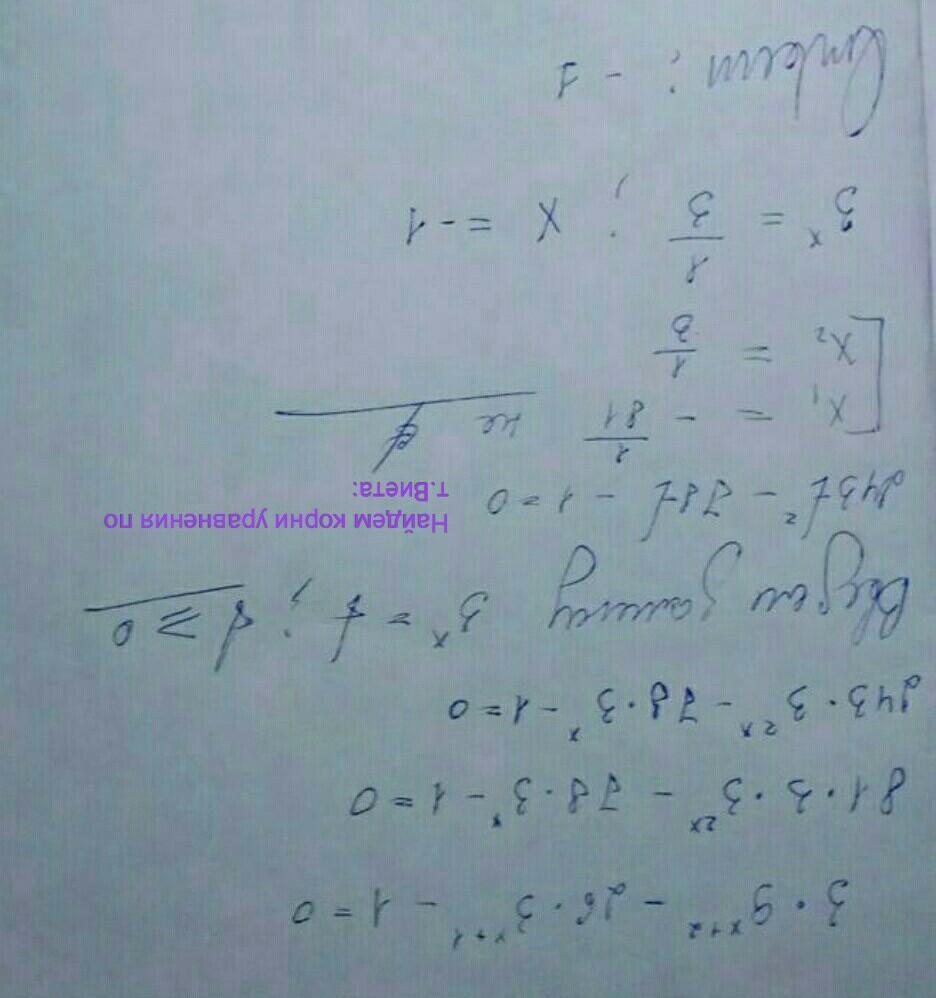 3 · 9ˣ⁺² - 26 · 3ˣ⁺¹ - 1 = 0
81 · 3 · 3²ˣ - 78 · 3ˣ - 1 = 0
243 · 3²ˣ - 78 · 3ˣ - 1 = 0
Введем замену 3ˣ = t ; t ≥ 0
243t² - 78t - 1 = 0
Найдем корни уравнения по
т.Виета:
x₁ = - 1/81 не
x₂ = 1/3
3ˣ = 1/3 ; x = -1
Ответ: -1